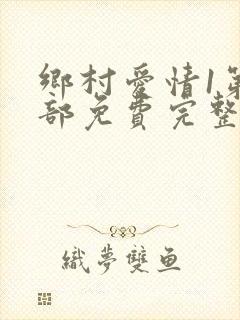 鄉村愛情1第
部免費完整
織夢雙魚